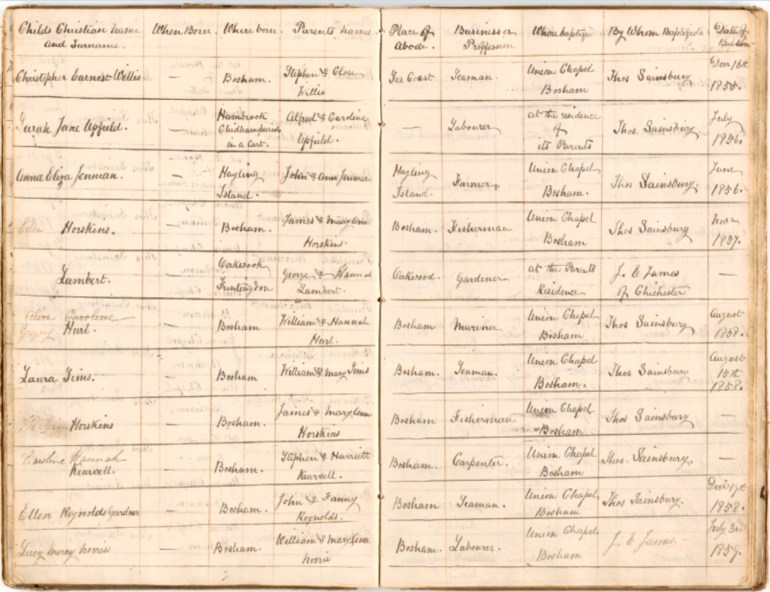 Childs Christian name When Born. Where born. Parents name. Place of Business or Whom baptized By Whom Baptized Date of
and Surname. Abode. Profession
Christopher Earnest Willis — Bosham. Stephen & Cloe Seaman. Union Chapel Thos Sainsbury
Willis Bosham 1855.
Sarah Jane Upfield. — Hambrook Alfred & Caroline — Labourer at the residence Thos. Sainsbury July
Chidham parish Upfield. of 1856.
in a Cart. its Parents
Anna Eliza Jenman. — Hayling John & Ann Jenman Hayling Farmer Union Chapel Thos Sainsbury June
Island. Island. Bosham. 1856.
Horskins. — Bosham. James & Mary Ann Bosham. Fisherman Union Chapel Thos Sainsbury
Horskins. Bosham 1857.
Lambert. — Oakwood George & Hannah Oakwood. Gardener at the Parents J. E James —
Funtingdon Lambert. Residence of Chichester
Caroline
Hurl. — Bosham William & Hannah Bosham Mariner Union Chapel Thos Sainsbury August
Hurl. Bosham 1858.
Laura Tims. — Bosham William & Mary Tims Bosham. Seaman. Union Chapel Thos Sainsbury August
Bosham. 1858.
Horskins — Bosham. James & Mary Ann Bosham. Fisherman Union Chapel Thos Sainsbury —
Horskins Bosham
Caroline Hannah
Kearvell. — Bosham. Stephen & Harriett Bosham. Carpenter. Union Chapel Thos. Sainsbury. —
Kearvell. Bosham
Ellen Reynolds Gardner — Bosham. John & Fanny Bosham Seaman. Union Chapel Thos Sainsbury.
Reynolds. Bosham 1858.
Lucy Mercy Norris — Bosham. William & Mary Ann Bosham. Labourer. Union Chapel J. E James
Norris Bosham 1859.